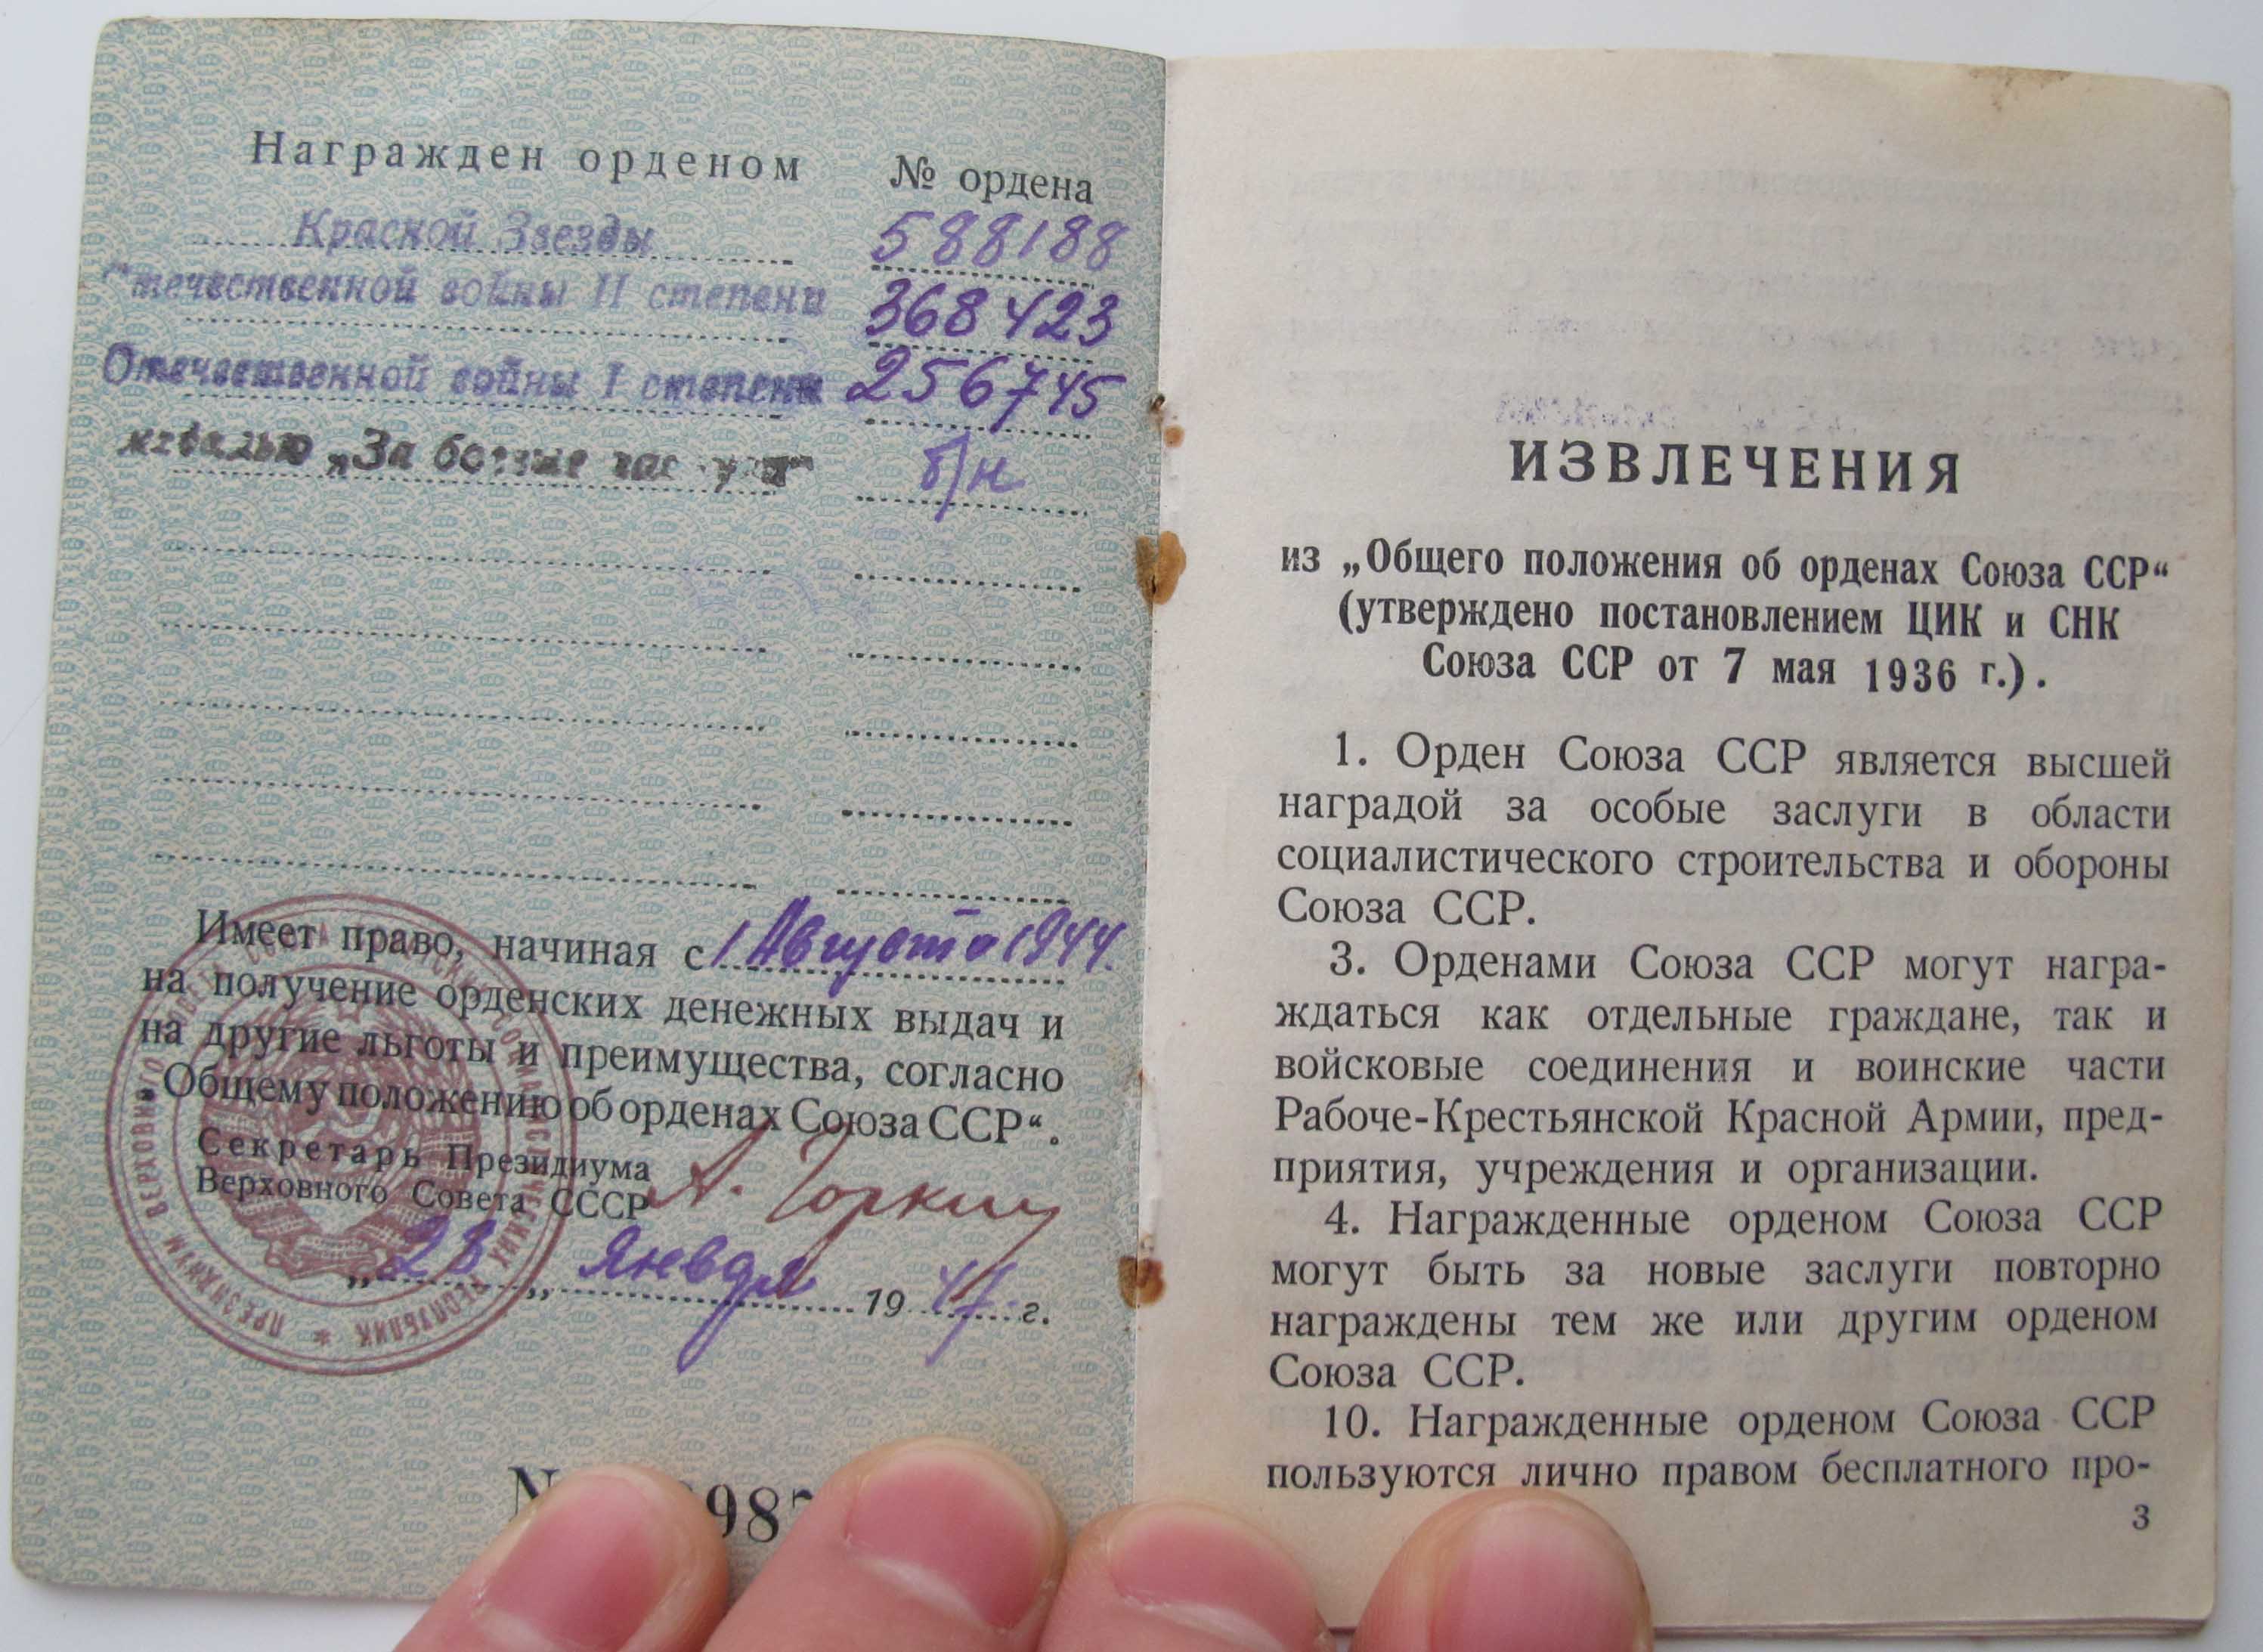 Награжден орденом № ордена
Красной Звезды 588188
Отечественной войны II степени 368423
Отечественной войны I степени 256745
медалью „За боевые заслуги“ б/н
Имеет право, начиная с 1 Августа 1944.
на получение орденских денежных выдач и
на другие льготы и преимущества, согласно
„Общему положению об орденах Союза ССР“.
Секретарь Президиума
Верховного Совета СССР А. Горкин
„23„ января 1947 г.
ПРЕЗИДИУМ ВЕРХОВНОГО СОВЕТА СОЮЗА СОВЕТСКИХ СОЦИАЛИСТИЧЕСКИХ РЕСПУБЛИК
ИЗВЛЕЧЕНИЯ
из „Общего положения об орденах Союза ССР“
(утверждено постановлением ЦИК и СНК
Союза ССР от 7 мая 1936 г.).
1. Орден Союза ССР является высшей
наградой за особые заслуги в области
социалистического строительства и обороны
Союза ССР.
3. Орденами Союза ССР могут награ-
ждаться как отдельные граждане, так и
войсковые соединения и воинские части
Рабоче-Крестьянской Красной Армии, пред-
приятия, учреждения и организации.
4. Награжденные орденом Союза ССР
могут быть за новые заслуги повторно
награждены тем же или другим орденом
Союза ССР.
10. Награжденные орденом Союза ССР
пользуются лично правом бесплатного про-
3